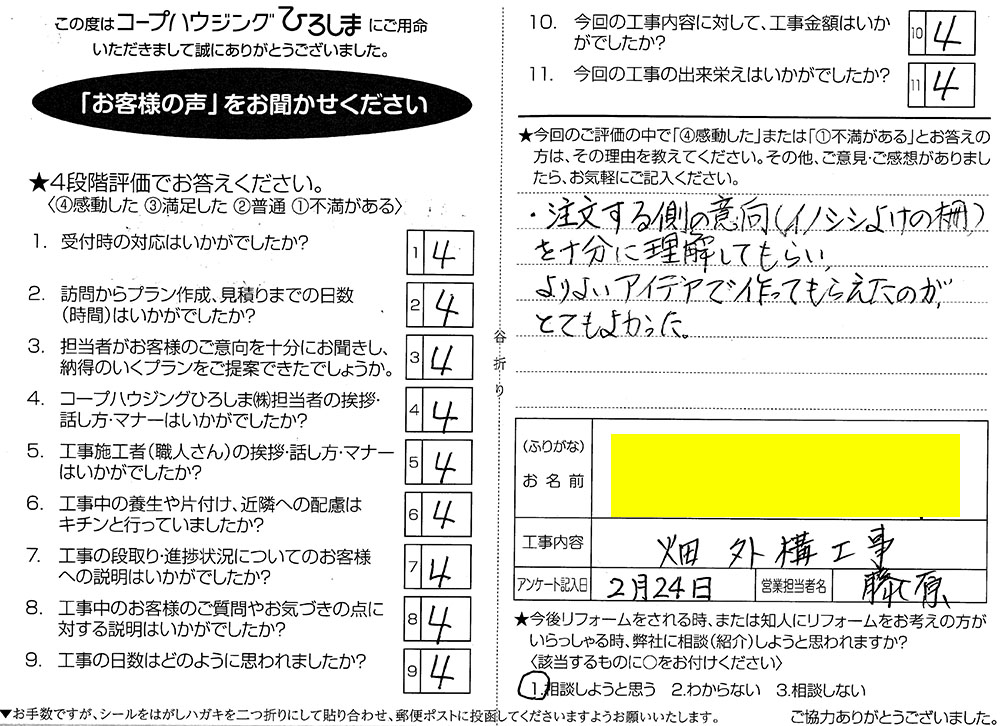 この度はコープハウジングひろしまにご用命
いただきまして誠にありがとうございました。
「お客様の声」をお聞かせください
★4段階評価でお答えください。
〈④感動した ③満足した ②普通 ①不満がある〉
1. 受付時の対応はいかがでしたか?
1 4
2. 訪問からプラン作成、見積りまでの日数
(時間)はいかがでしたか?
2 4
3. 担当者がお客様のご意向を十分にお聞きし、
納得のいくプランをご提案できたでしょうか。
3 4
4. コープハウジングひろしま㈱担当者の挨拶・
話し方・マナーはいかがでしたか?
4 4
5. 工事施工者(職人さん)の挨拶・話し方・マナー
はいかがでしたか?
5 4
6. 工事中の養生や片付け、近隣への配慮は
キチンと行っていましたか?
6 4
7. 工事の段取り・進捗状況についてのお客様
への説明はいかがでしたか?
7 4
8. 工事中のお客様のご質問やお気づきの点に
対する説明はいかがでしたか?
8 4
9. 工事の日数はどのように思われましたか?
9 4
▼お手数ですが、シールをはがしハガキを二つ折りにして貼り合わせ、郵便ポストに投函してくださいますようお願いいたします。
谷折り
10. 今回の工事内容に対して、工事金額はいか
がでしたか?
10 4
11. 今回の工事の出来栄えはいかがでしたか?
11 4
★今回のご評価の中で「④感動した」または「①不満がある」とお答えの
方は、その理由を教えてください。その他、ご意見・ご感想がありまし
たら、お気軽にご記入ください。
・注文する側の意向(イノシシよけの柵)
を十分に理解してもらい、
よりよいアイデアで作ってもらえたのが、
とてもよかった。
(ふりがな)
お名前
工事内容 畑 外構工事
アンケート記入日 2月24日 営業担当者名 藤原
★今後リフォームをされる時、または知人にリフォームをお考えの方が
いらっしゃる時、弊社に相談(紹介)しようと思われますか?
〈該当するものに○をお付けください〉
1.相談しようと思う 2.わからない 3.相談しない
ご協力ありがとうございました。